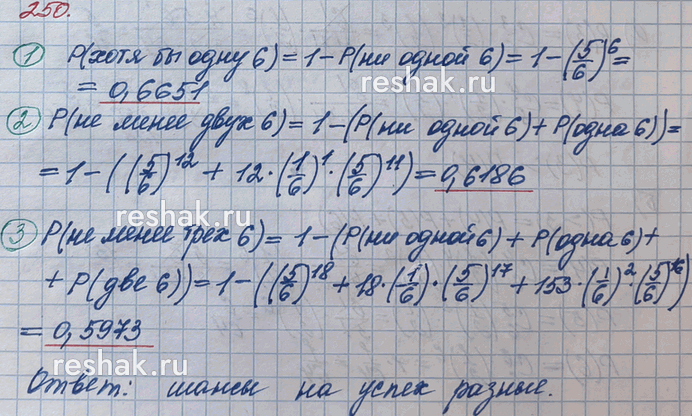 250.
① P(хотя бы одну 6) = 1 – P(ни одной 6) = 1 – (5/6)^6 =
= 0,6651
reshak.ru
② P(не менее двух 6) = 1 – (P(ни одной 6) + P(одна 6)) =
= 1 – ((5/6)^12 + 12·(1/6)^1·(5/6)^11) = 0,6186
reshak.ru
③ P(не менее трех 6) = 1 – (P(ни одной 6) + P(одна 6) +
+ P(две 6)) = 1 – ((5/6)^18 + 18·(1/6)·(5/6)^17 + 153·(1/6)^2·(5/6)^16)
= 0,5973
reshak.ru
Ответ: шансы на успех разные.